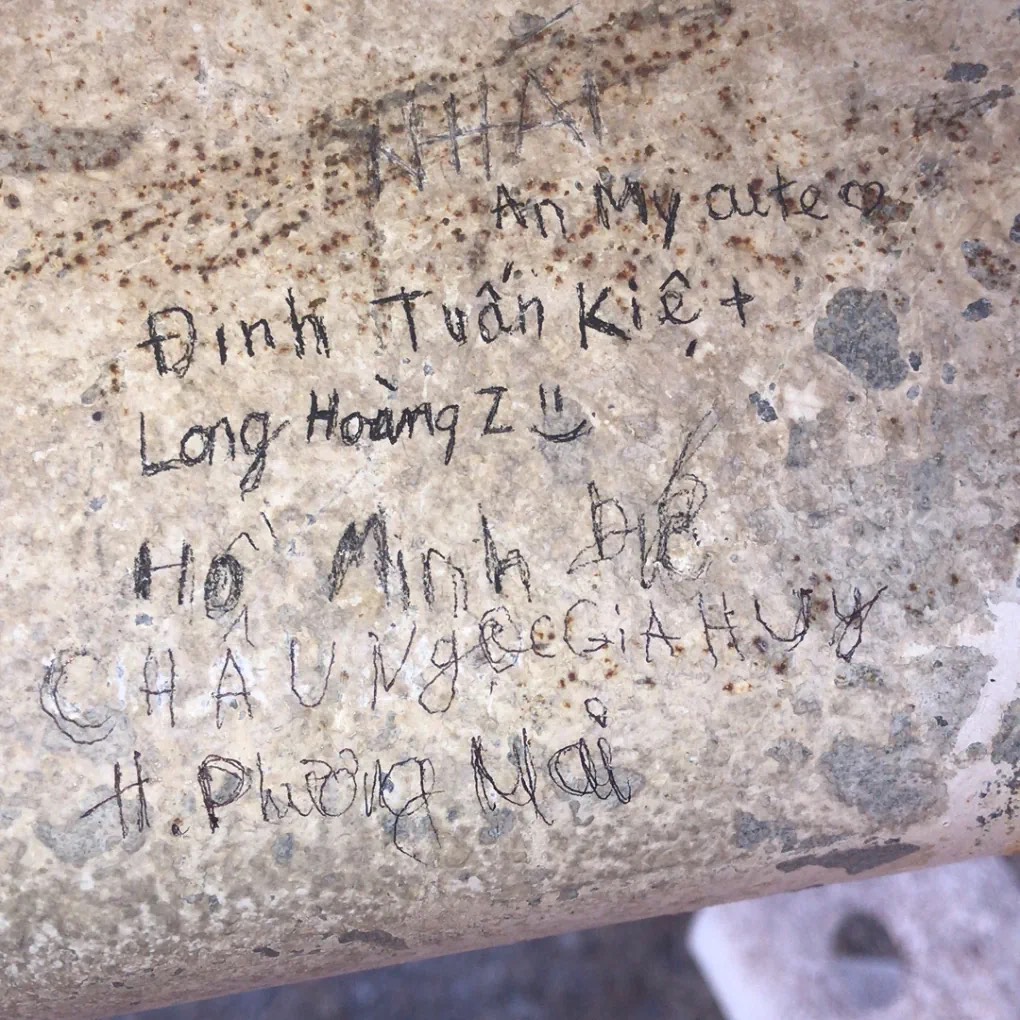 NHÃ
An My cute ♡
Đinh Tuấn Kiệt
Long Hoàng Z
Hồ Minh
CHÂU Ngọc GiA HUY
H. Phương Mai